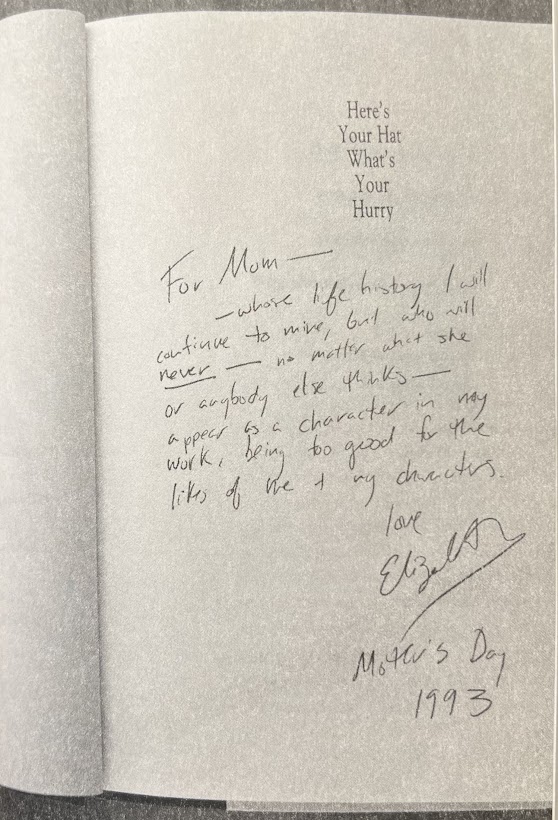 Here's
Your Hat
What's
Your
Hurry
For Mom —
— whose life history I will
continue to mine, but who will
never — no matter what she
or anybody else thinks —
appear as a character in my
work, being too good for the
likes of me + my characters.
love
Elizabeth
Mother's Day
1993